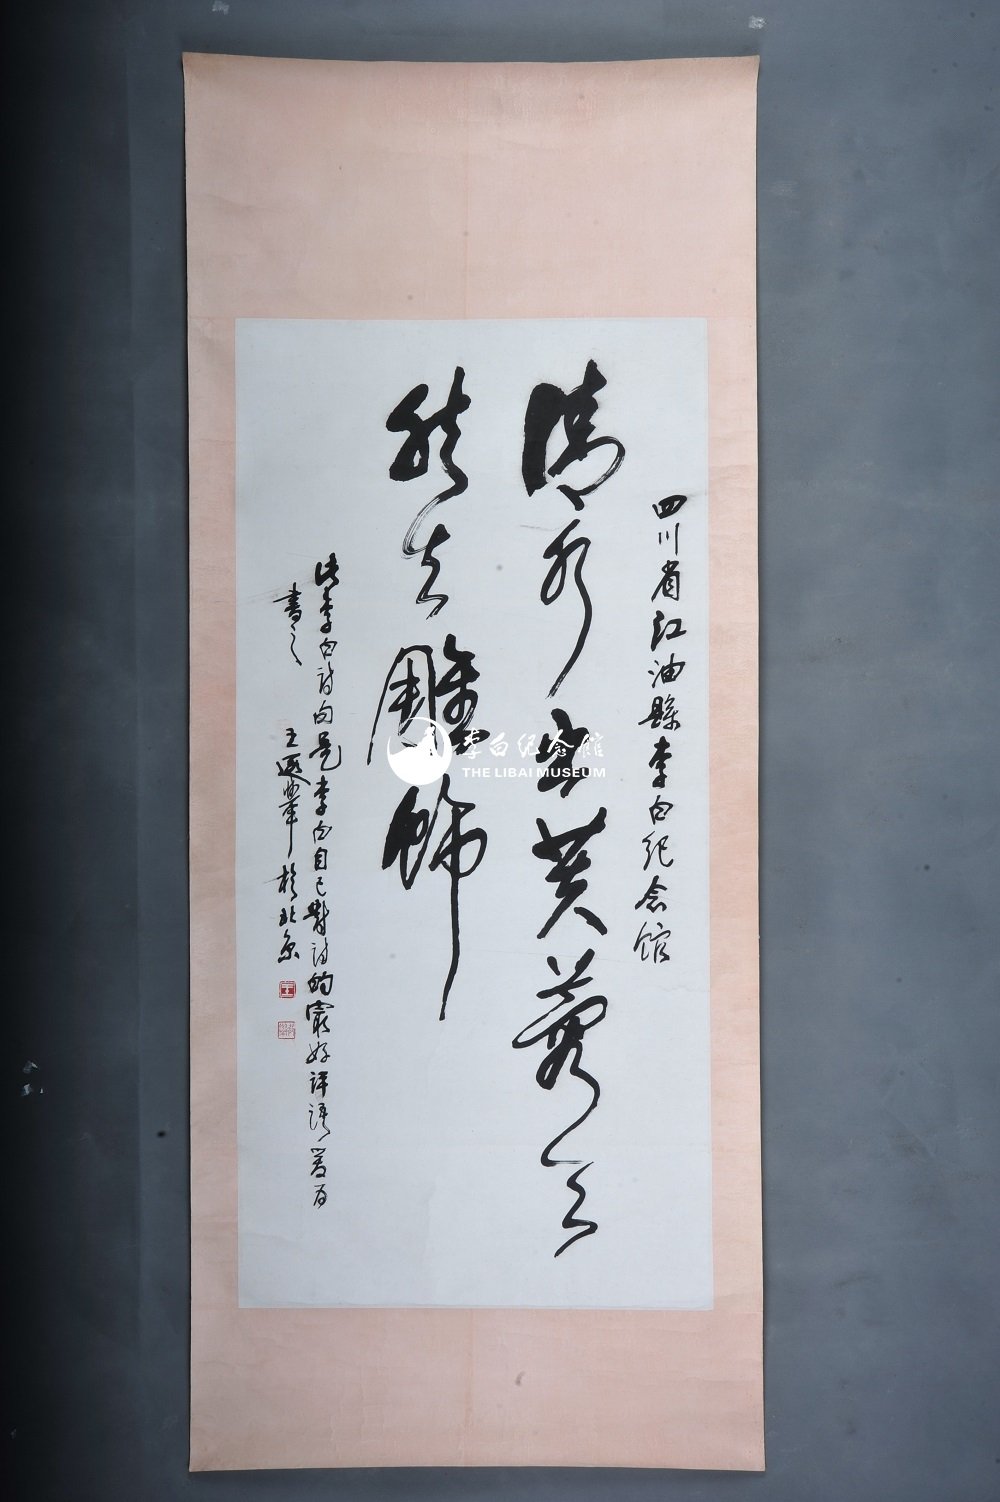 四川省江油縣李白纪念馆
清水出芙蓉天
然去雕饰
此李白诗句是李白自己對诗的最好评语爰为
書之
王遐舉於北京
李白纪念馆
THE LIBAI MUSEUM